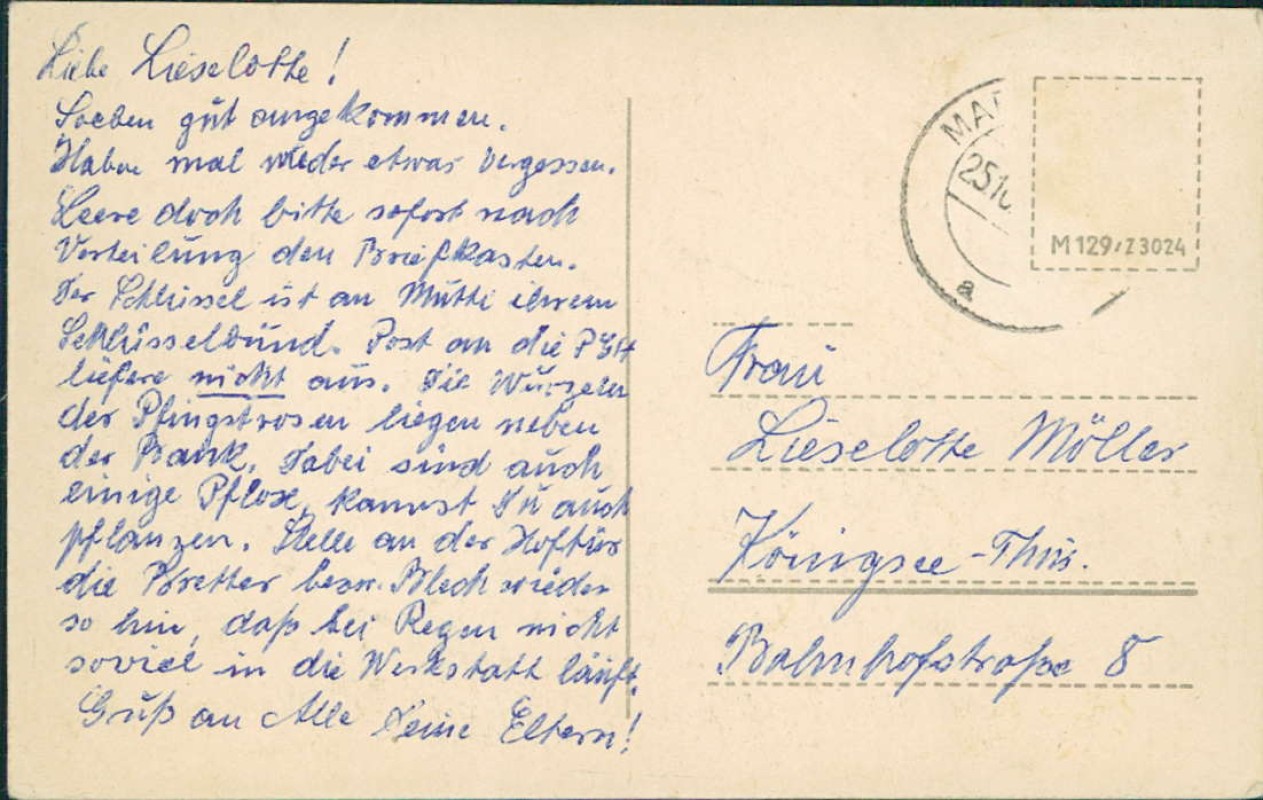 Liebe Lieselotte!
Soeben gut angekommen.
Haben mal wieder etwas vergessen.
Leere doch bitte sofort nach
Verteilung den Briefkasten.
Der Schlüssel ist an Mutti ihrem
Schlüsselbund. Post an die PGH
liefere nicht aus. Die Wurzeln
der Pfingstrosen liegen neben
der Bank. Dabei sind auch
einige Pflox, kannst Du auch
pflanzen. Stelle an der Hoftür
die Bretter bezw. Blech wieder
so hin, daß bei Regen nicht
soviel in die Werkstatt läuft.
Gruß an Alle Deine Eltern!
MA
25.10
a
M129/Z3024
Frau
Lieselotte Möller
Königsee-Thür.
Bahnhofstraße 8